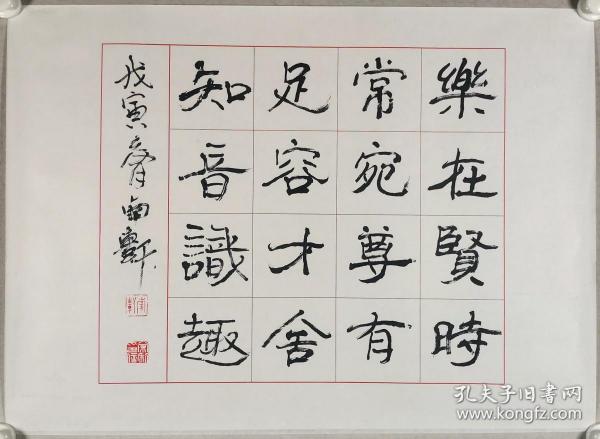 知足常樂
音容宛在
識才尊賢
趣舍有時
戊寅
孔夫子旧书网
www.kongfz.com